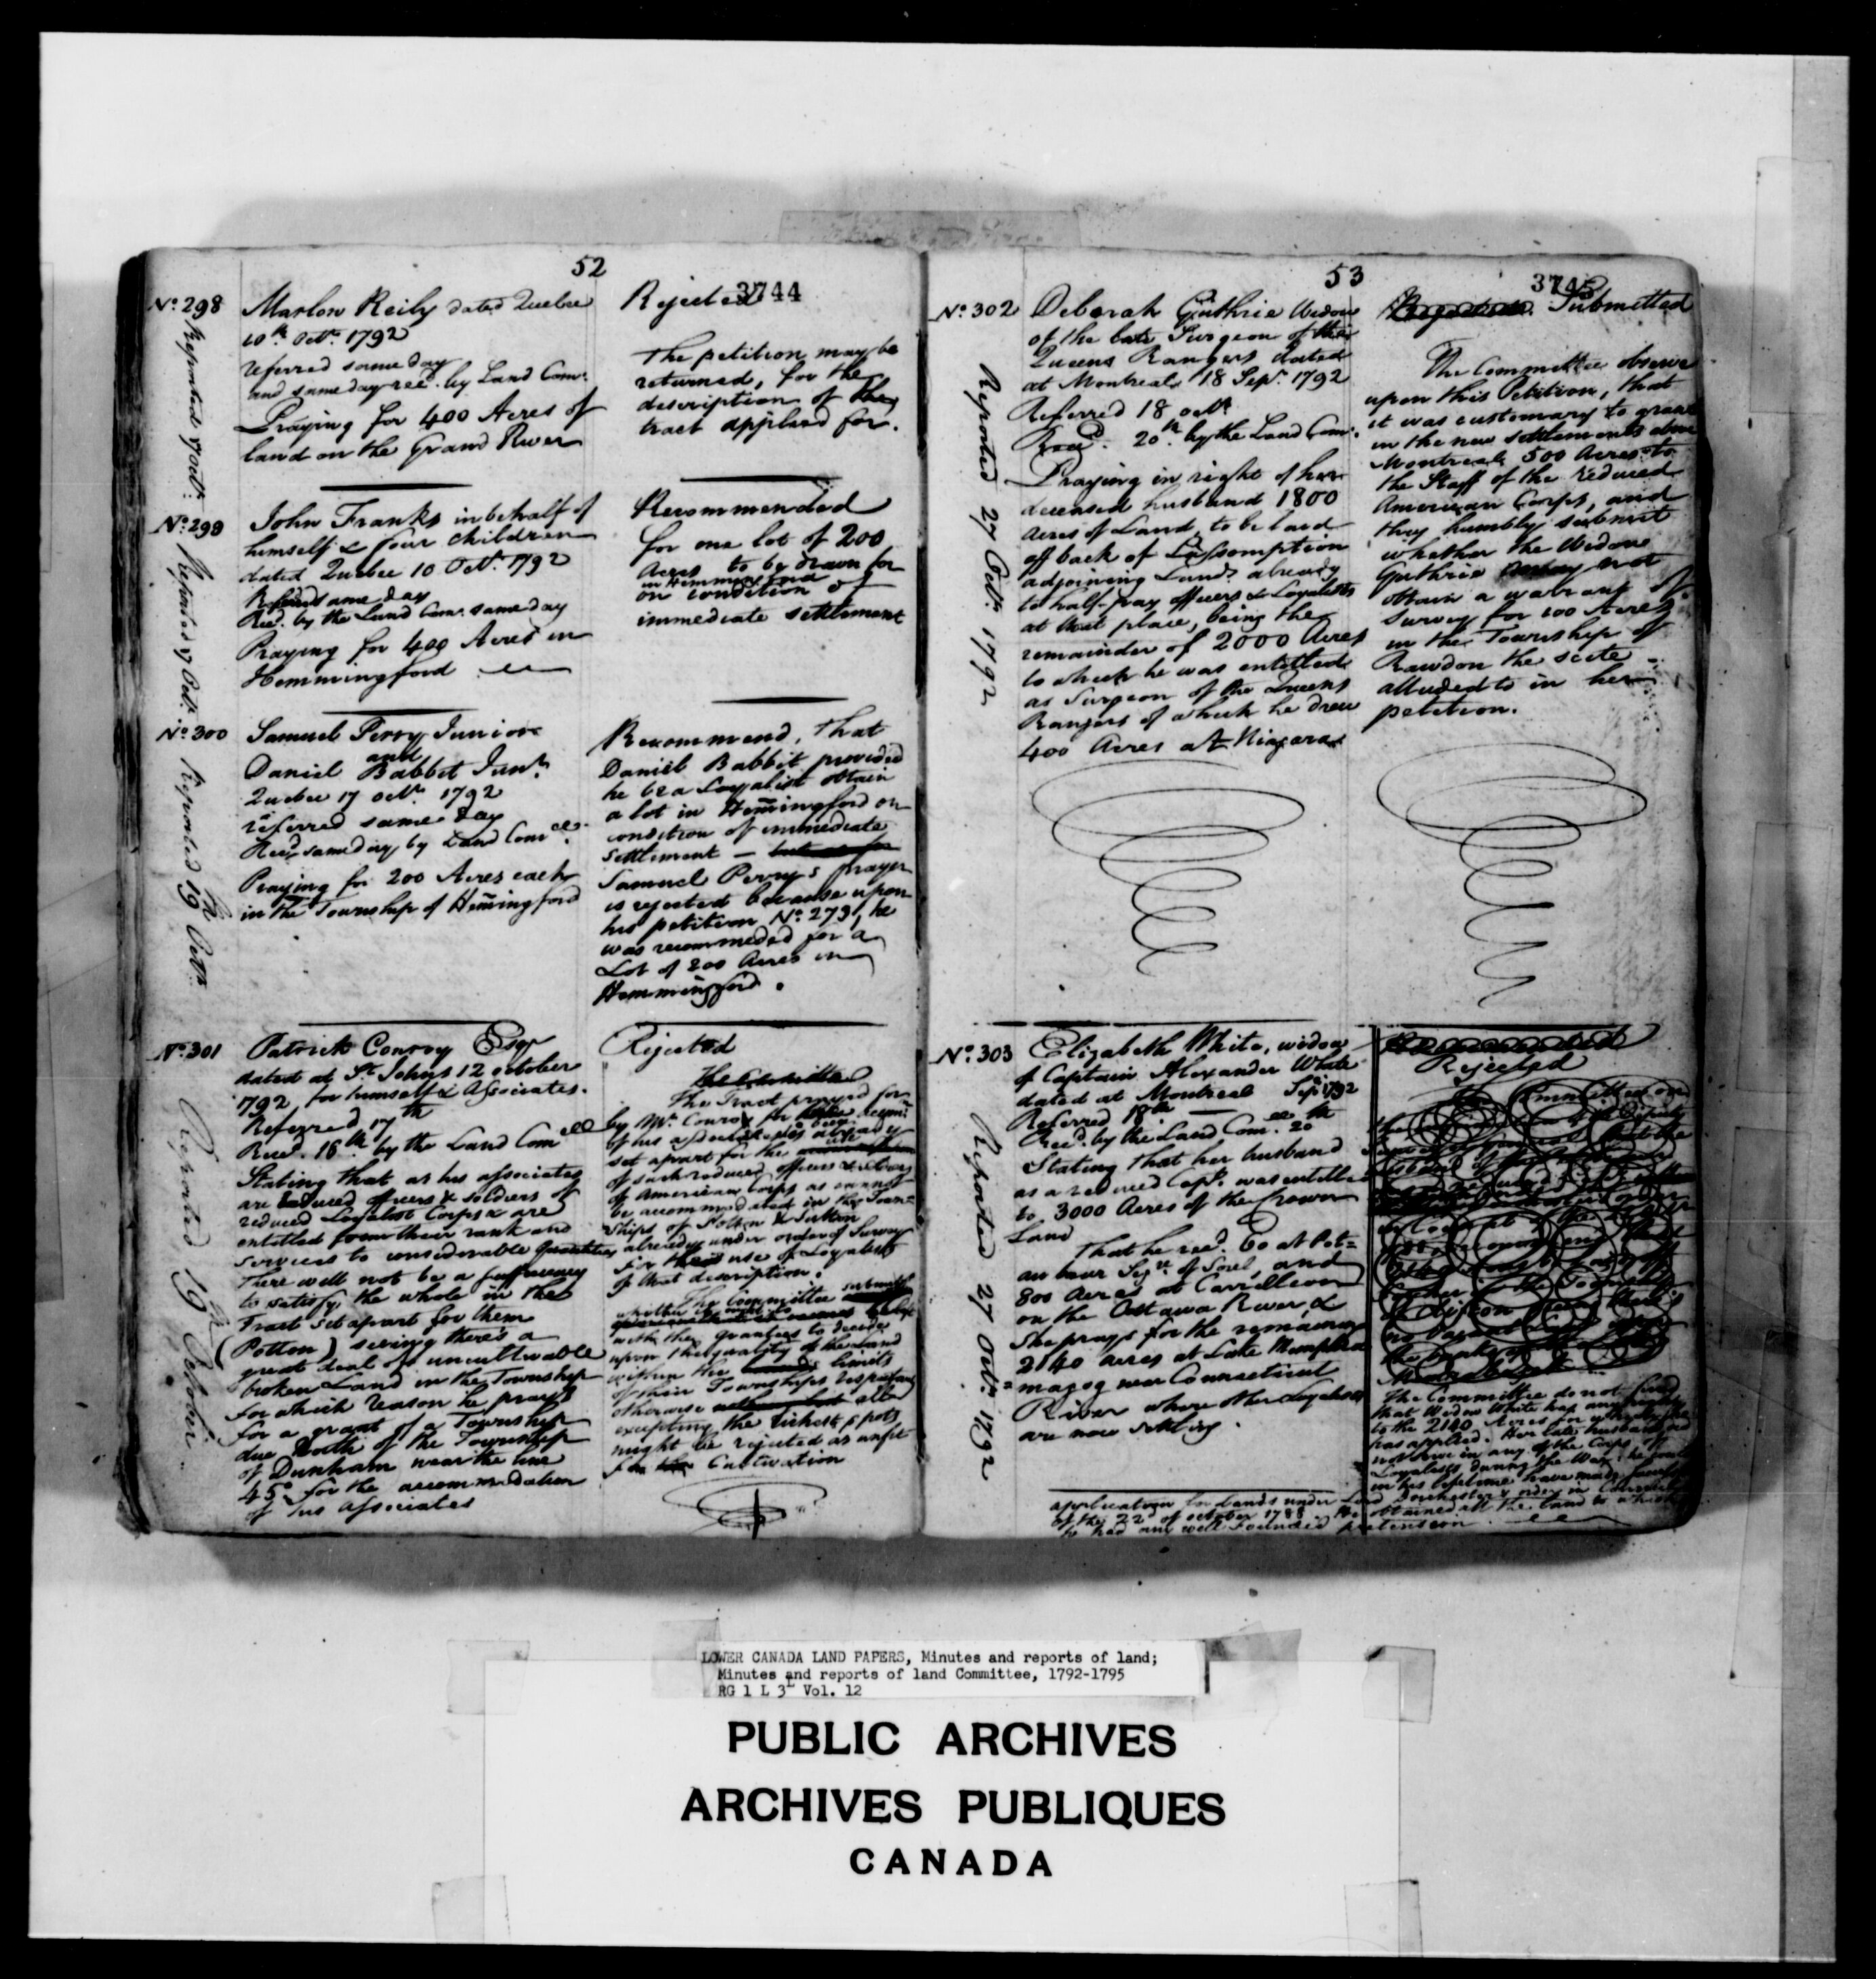 52
3744
No. 298
Marlon Reily dated Quebec
10th Octr. 1792
referred same day
and same day rec'd. by Land Comee.
Praying for 400 Acres of
land on the Grand River
Rejected
The petition may be
returned, for the
description of the
tract applied for.
Reported 17 Octr.
No. 299
John Franks in behalf of
himself & four children
dated Quebec 10 Octr. 1792
Refer'd same day
Rec'd. by the Land Com. same day
Praying for 400 Acres in
Hemmingford
Recommended
for one lot of 200
Acres to be drawn for
in Hemmingford
on condition of
immediate settlement
Reported 17 Octr.
No. 300
Samuel Perry Junior
and
Daniel Babbet Junr.
Quebec 17 octr. 1792
referred same day
Rec'd same day by Land Comee.
Praying for 200 Acres each
in the Township of Hemingford
Recommend, that
Daniel Babbit provided
he be a Loyalist obtain
a lot in Hemingford on
condition of immediate
settlement — but as for
Samuel Perry's prayer
is rejected because upon
his petition No. 279, he
was recommeded for a
Lot of 200 Acres in
Hemmingford.
Reported 19th Octr.
No. 301
Patrick Conroy Esqr
dated at St. Johns 12 october
1792, for himself & Associates.
Referred 17th
Rec'd. 18th by the Land Comee
Stating that as his associates
are reduced officers & soldiers of
reduced Loyalist Corps & are
entitled from their rank and
services to considerable quantities
There will not be a sufficiency
to satisfy the whole in the
Tract set apart for them
(Potton) seeing there's a
great deal of uncultivable
broken Land in the Township
for which reason he prays
for a grant of a Township
due South of the Township
of Dunham near the line
45° for the accommodation
of his associates
Rejected
The Committee
The Tract prayed for
by Mr. Conroy for the accom:
of his associates has been already
set apart for the use
of such reduced officers & soldiers
of American Corps as cannot
be accommodated in the Town=
ships of Potton & Sutton
already under order of Survey
for the use of Loyalists
of that description.
The Committee submit
whether it
with the grantees to decide
upon the quality of the Land
within the limits
of their Townships respectively
otherwise all
excepting the richest spots
might be rejected as unfit
for Cultivation
Reported 19th October
53
3745
No. 302
Deborah Guthrie Widow
of the late Surgeon of the
Queens Rangers dated
at Montreal 18 Sepr. 1792
Referred 18 octr.
Rec'd. 20th. by the Land Com:
Praying in right of her
deceased husband 1800
acres of Land to be laid
off back of L'assomption
adjoining Lands already
to half-pay officers & Loyalists
at that place, being the
remainder of 2000 Acres
to which he was entitled
as Surgeon of the Queens
Rangers of which he drew
400 Acres at Niagara
Submitted
The Committee observe
upon this Petition, that
it was customary to grant
in the new settlements above
Montreal 500 Acres to
the Staff of the reduced
American Corps, and
they humbly submit
whether the Widow
Guthrie may not
obtain a warrant of
Survey for 100 Acres
in the Township of
Rawdon the scite
alluded to in her
petition.
Reported 27 Octr. 1792
No. 303
Elizabeth White, widow
of Captain Alexander White
dated at Montreal Sepr 1792
Referred 18th —
Rec'd. by the Land Comee. 20th
Stating that her husband
as a reduced Capt. was entitled
to 3000 Acres of the Crown
Land
That he rec'd. 60 at Pot=
au beur Segry. of Sorel, and
800 Acres at Carrillion
on the Ottawa River, &
she prays for the remaining
2140 acres at Lake Memphre
=magog near Connecticut
River where other Loyalists
are now settling.
Recommended
Rejected
The Committee do not find
that Widow White has any
to the 2140 Acres for which she
has applied. Her late husband did
not serve in any of the Corps of
Loyalists during the War; he
in his lifetime have made
application for Lands under Lord Dorchester's order in Council
of the 22d of october 1788. He obtained all the land to which
he had any well founded pretension.
Reported 27 Octr. 1792
LOWER CANADA LAND PAPERS, Minutes and reports of land;
Minutes and reports of land Committee, 1792-1795
RG 1 L 3L Vol. 12
PUBLIC ARCHIVES
ARCHIVES PUBLIQUES
CANADA